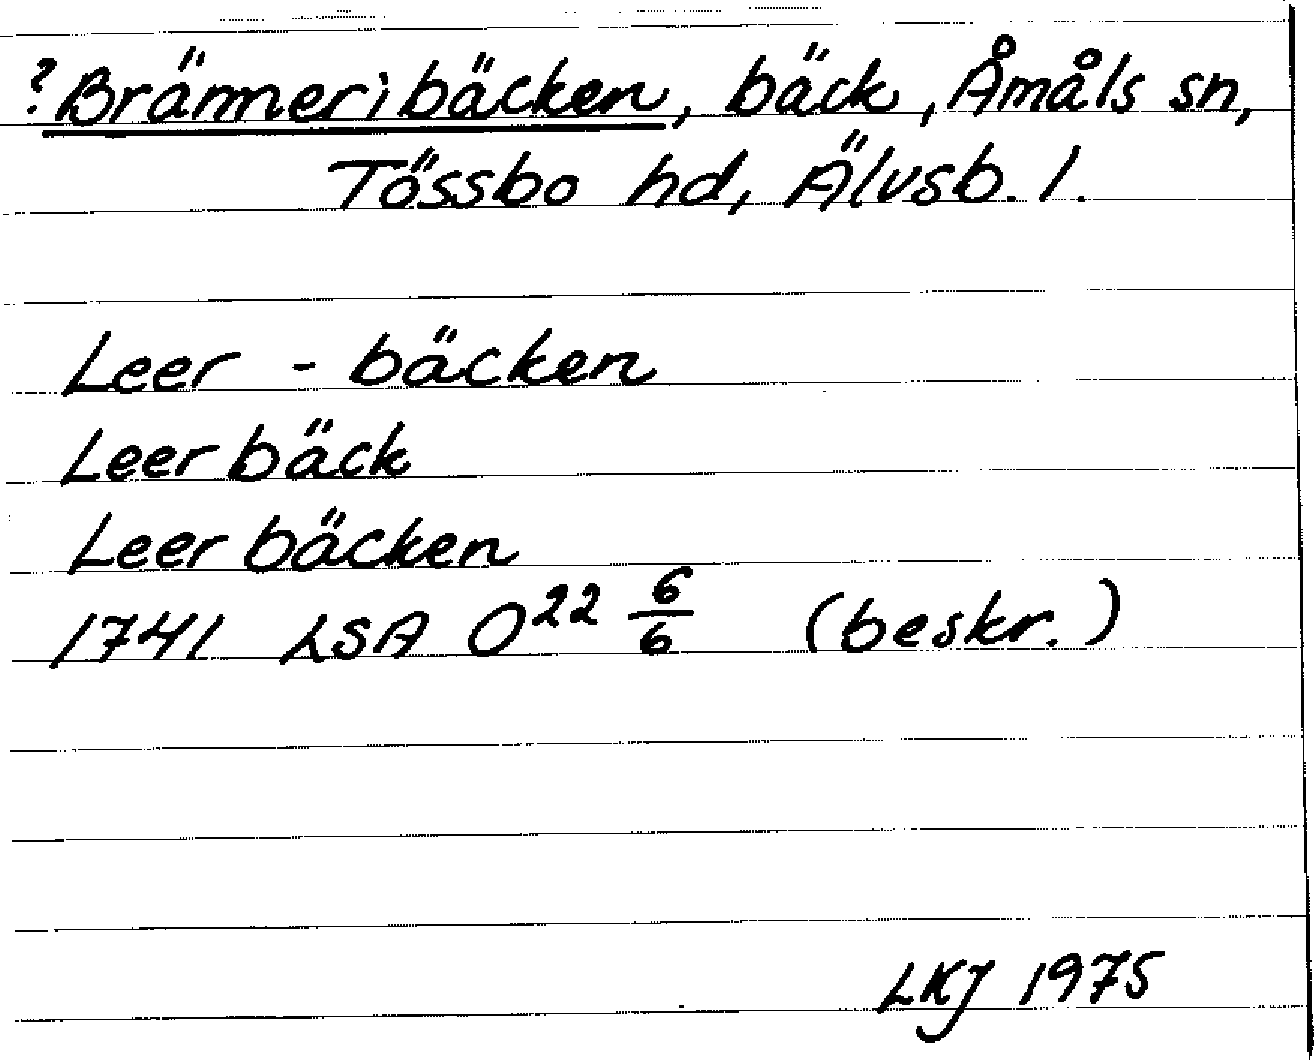 ?Bränneribäcken, bäck, Åmåls sn,
Tössbo hd, Älvsb. l.
Leer - bäcken
Leerbäck
Leerbäcken
1741 LSA O22 6/6 (beskr.)
LKJ 1975